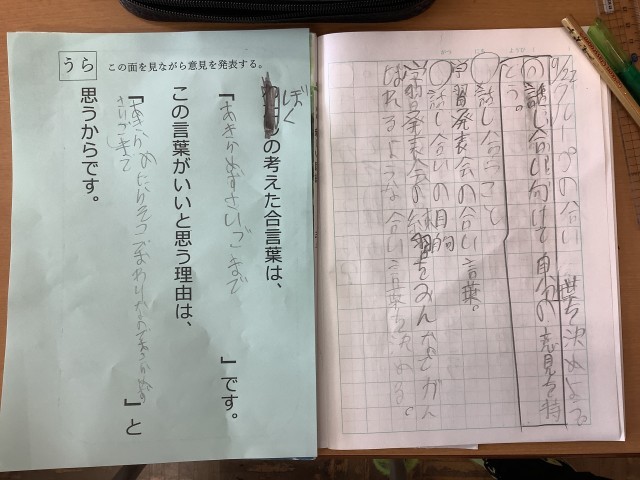 9/22 グループの合い言葉を決めよう。
め 話し合いに向けて自分の意見を持
とう。
○話し合うこと
学習発表会の合い言葉。
○話し合いの目的
学習発表会の練習をみんなでがん
ばれるような合い言葉を決める。
うら この面を見ながら意見を発表する。
ぼくの考えた合言葉は、
「あきらめずさいごまで」です。
この言葉がいいと思う理由は、
「あきらめたらそこでおわりなのであきらめず
さいごまで」と
思うからです。